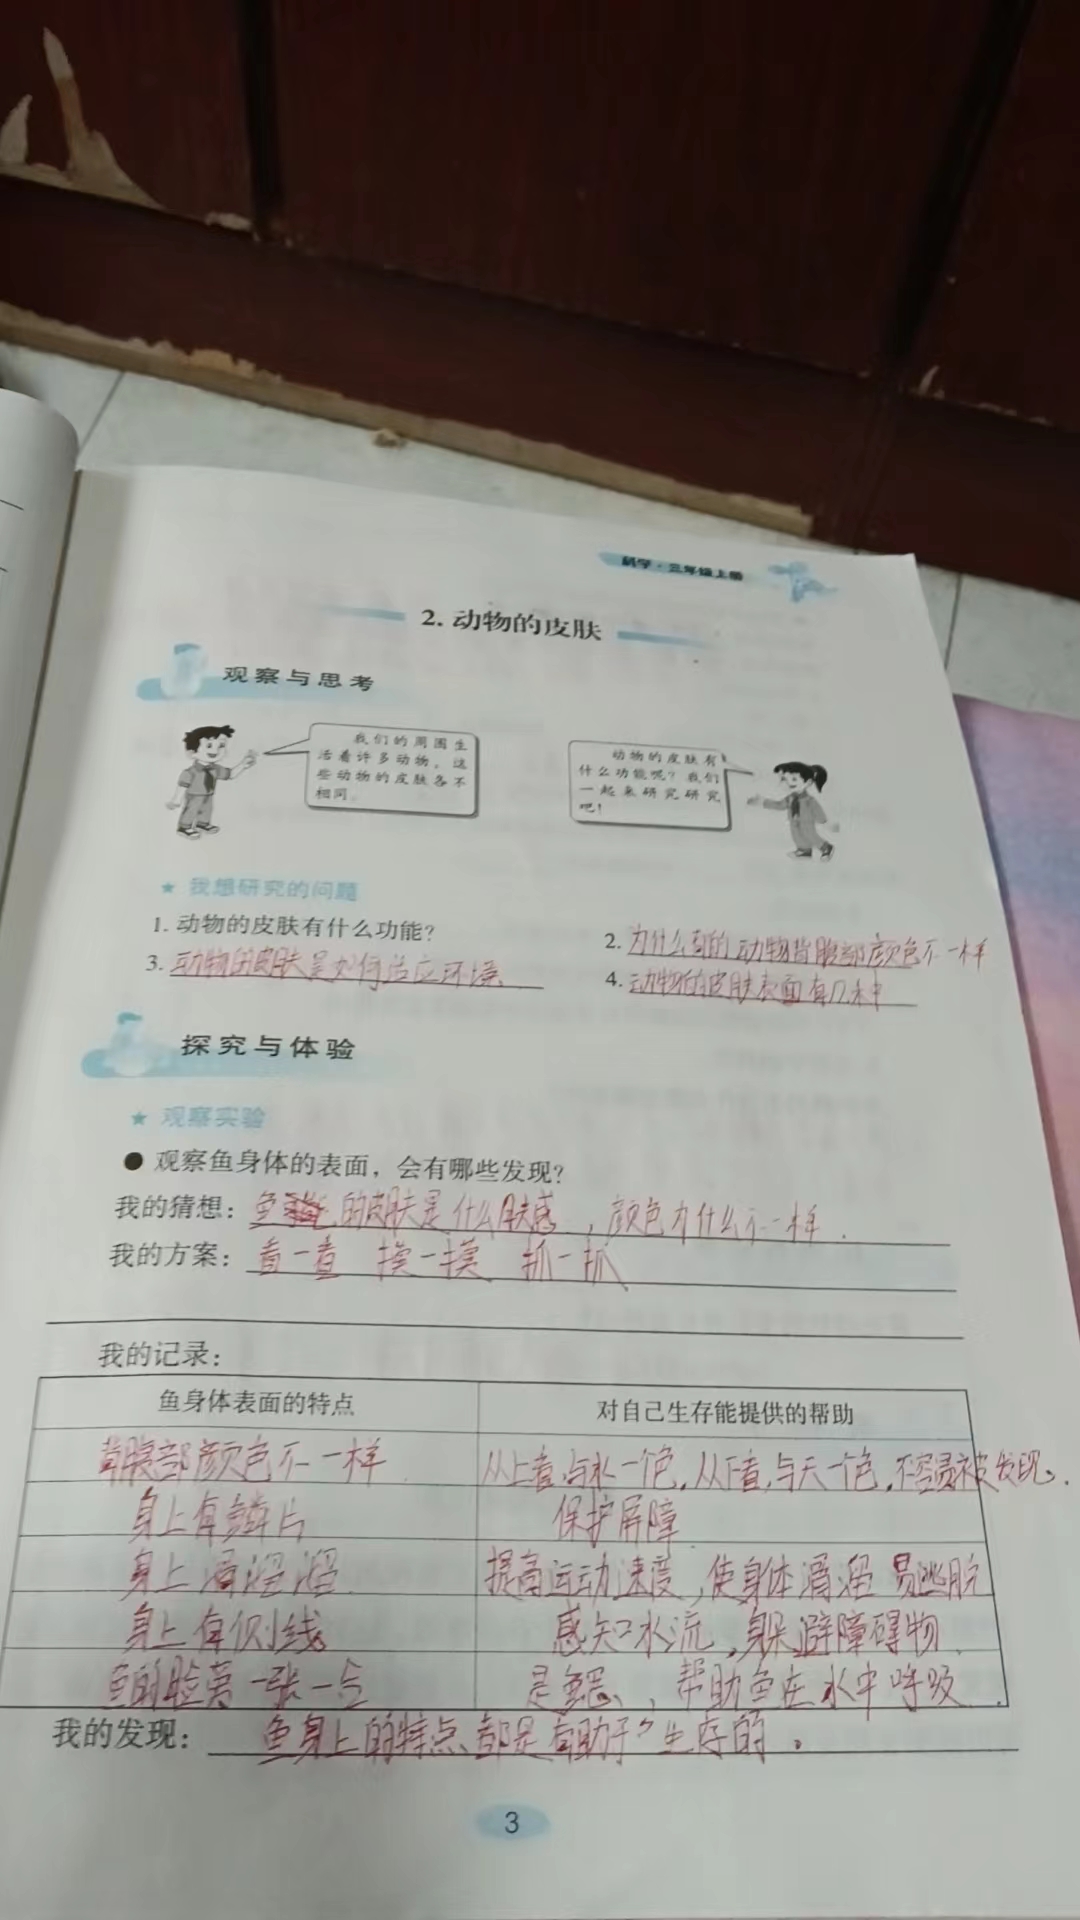 科学·三年级上册
2.动物的皮肤
观察与思考
我们的周围生
活着许多动物，这
些动物的皮肤各不
相同。
动物的皮肤有
什么功能呢？我们
一起来研究研究
吧！
★ 我想研究的问题
1. 动物的皮肤有什么功能？
2. 为什么有的动物背腹部颜色不一样
3. 动物的皮肤是如何适应环境
4. 动物的皮肤表面有几种
探究与体验
★ 观察实验
● 观察鱼身体的表面，会有哪些发现？
我的猜想：鱼 的皮肤是什么肤感，颜色为什么不一样.
我的方案：看一看 摸一摸 抓一抓
我的记录：
鱼身体表面的特点 对自己生存能提供的帮助
背腹部颜色不一样 从上看,与水一个色,从下看,与天一个色,不容易被发现.
身上有鳞片 保护屏障
身上滑溜溜 提高运动速度,使身体滑溜 易逃脱
身上有侧线 感知水流,躲避障碍物
鱼的脸旁一张一合 是鱼鳃,帮助鱼在水中呼吸.
我的发现：鱼身上的特点都是有助于生存的.
3